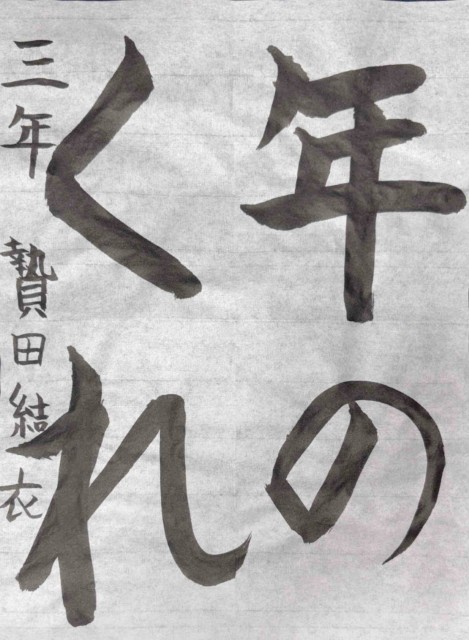 年の
くれ
三年 贄田結衣